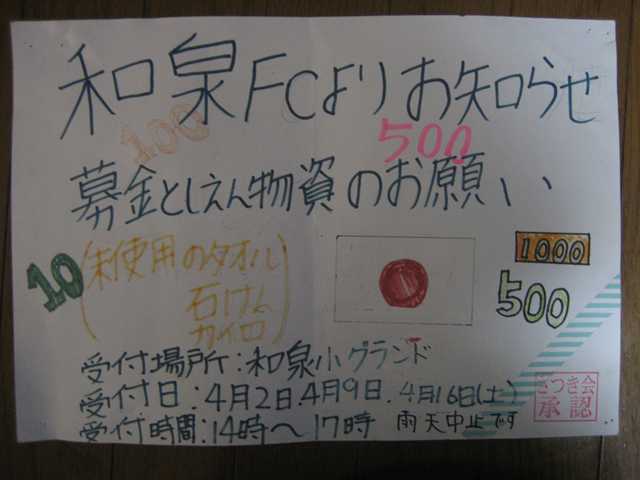 和泉FCよりお知らせ
100
500
募金としえん物資のお願い
10
(未使用のタオル
石けん
カイロ)
1000
500
受付場所:和泉小グランド
受付日:4月2日.4月9日.4月16日(土)
受付時間:14時〜17時 雨天中止です
さつき会
承認